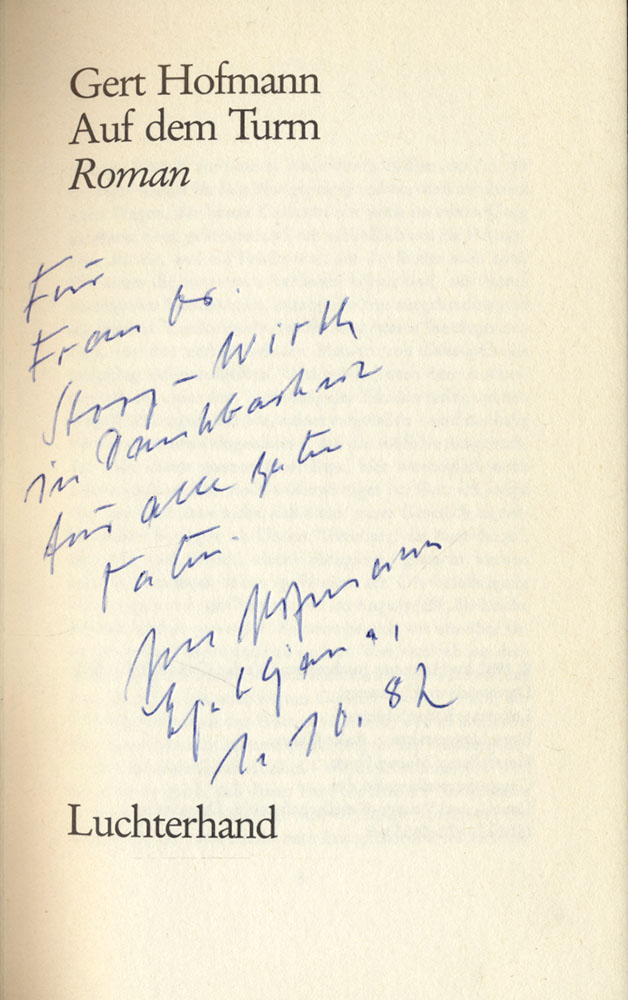 Gert Hofmann
Auf dem Turm
Roman
Für
Frau
Wirth
in Dankbarkeit
für alle guten
Taten.
Gert Hofmann
Ljubljana,
1. 10. 82
Luchterhand